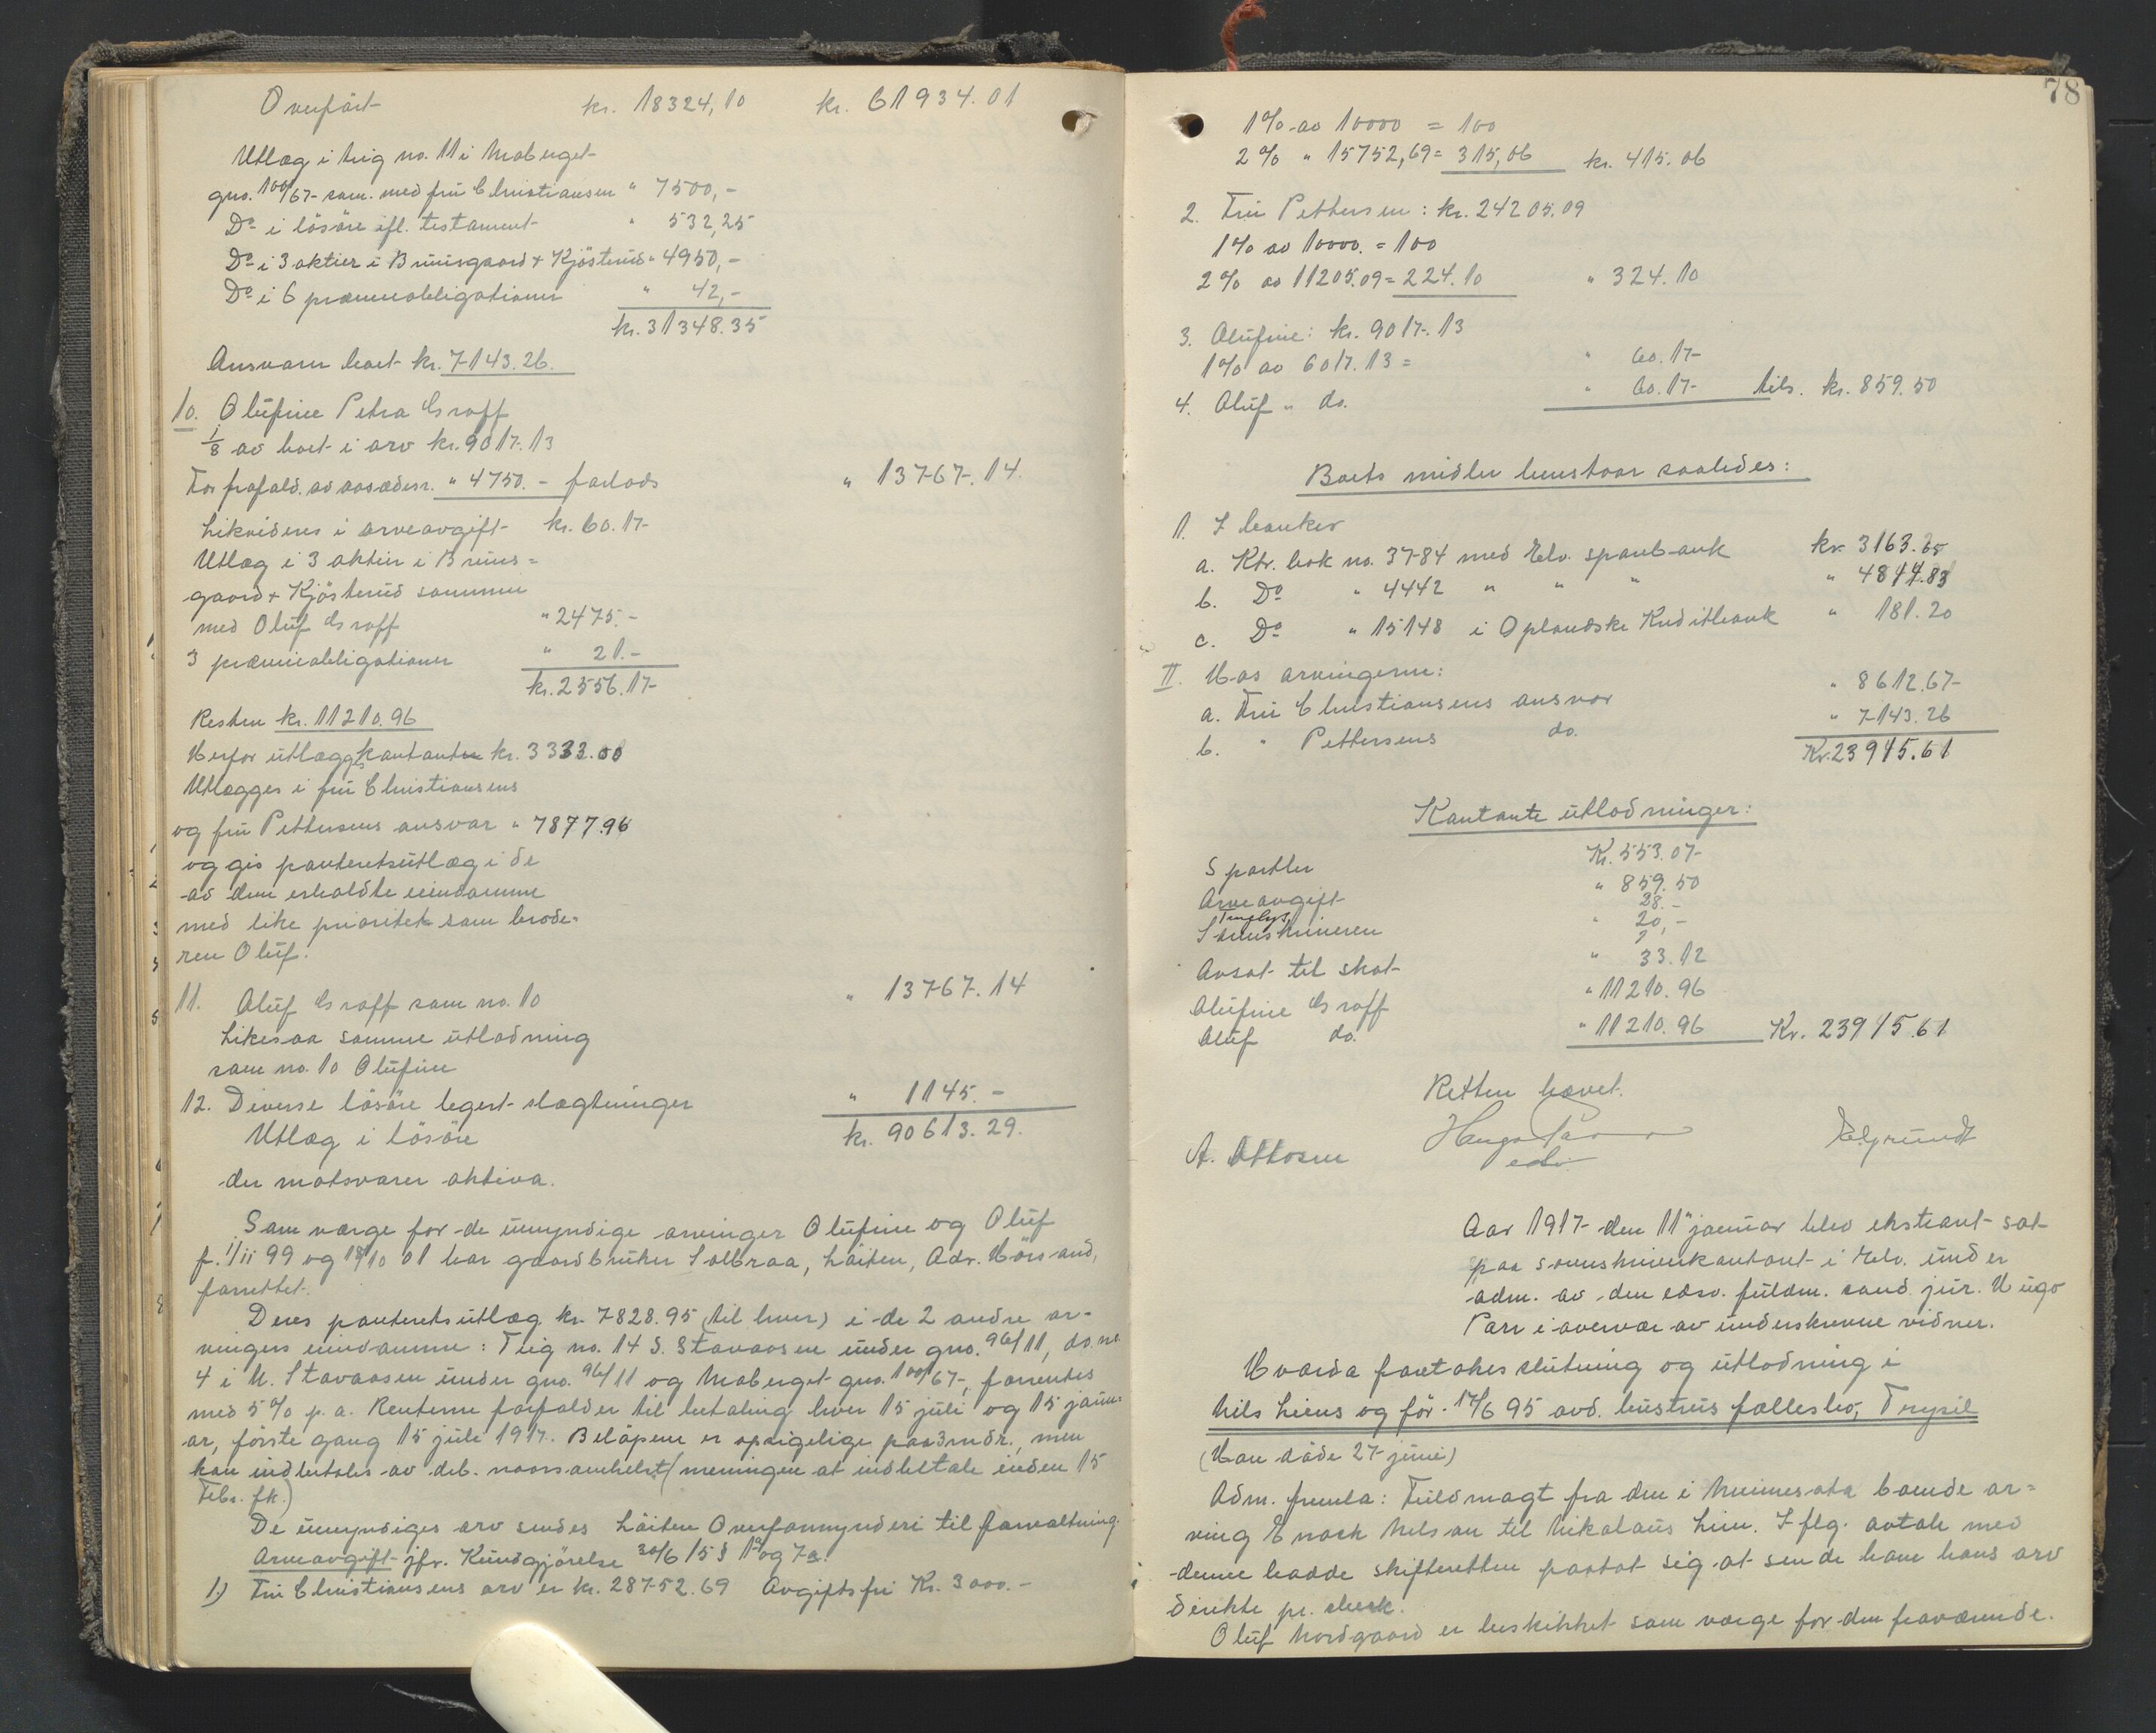 Overført kr. 18324,10 kr. 61934.01
Utlæg i leig no. 11 i Moberget
gno. 100/67 sam. med fru Christiansen " 7500,-
Do i løsøre ifl. testament " 532,25
Do i 3 aktier i Bruusgaard & Kjøsterud " 4950,-
Do i 6 præmieobligationer " 42,-
kr. 31348.35
Ansvarer boet kr. 7143.26.
10. Olufine Petra Graff
1/8 av boet i arv kr. 9017.13
For frafald. av aasædesr. " 4750.- forlods " 13767.14.
Likvideres i arveavgift kr. 60.17
Utlæg i 3 aktier i Bruus=
gaard & Kjøsterud sammen
med Oluf Graff " 2475.-
3 præmieobligationer " 21.-
kr. 2556.17
Resten kr. 11210.96
Herfor utlægges kontant kr. 3333.00
Utlægges i fru Christiansens
og fru Pettersens ansvar " 7877.96
og gis panteretsutlæg i de
av dem erholdte eiendomme
med like prioritet som brode=
ren Oluf.
11. Oluf Graff som no. 10 " 13767.14
Likesaa samme utlodning
som no. 10 Olufine
12. Diverse løsøre legert slægtninger " 1145.-
Utlæg i løsøre kr. 90613.29.
der motsvarer aktiva.
Som værge for de umyndige arvinger Olufine og Oluf
f. 1/11 99 og 19/10 01 har gaardbruker Solbraa, Løiten, Adr. Hørsand,
forrettet.
Deres panteretsutlæg kr. 7828.95 (til hver) i de 2 andre ar-
vingers eiendomme: Teig no. 14 S. Stavaasen under gno. 96/11, do. no
4 i N. Stavaasen under gno. 96/11 og Moberget gno. 100/67, forrentes
med 5% p.a. Renterne forfalder til betaling hver 15 juli og 15 janu=
ar, første gang 15 juli 1917. Beløpene er opsigelige paa 3 mdr., men
kan indbetales av deb. naarsomhelst (meningen at indbetale inden 15
Febr. fk.)
De umyndiges arv sendes Løiten Overformynderi til forvaltning.
Arveavgift jfr. Kundgjørelse 30/6 15 § 1 og 7a.
1) Fru Christiansens arv er kr. 28752.69 Avgiftsfri Kr. 3000.-
78
1% av 10000 = 100
2% " 15752,69 = 315,06 kr. 415.06
2. Fru Pettersen: kr. 24205.09
1% av 10000. = 100
2% av 11205.09 = 224.10 " 324.10
3. Olufine: kr. 9017.13
1% av 6017.13 = " 60.17
4. Oluf " do. " 60.17 tils. kr. 859.50
Boets midler henstaar saaledes:
1. I banker
a. Ktr. bok no. 3784 med Elv. sparebank kr. 3163.65
b. Do " 4442 " " " " 4844.83
c. Do " 15148 i Oplandske Kreditbank " 181.20
II. Hos arvingerne:
a. Fru Christiansens ansvar " 8612.67
b. " Pettersens do. " 7143.26
Kr. 23945.61
Kontante utlodninger:
Sportler Kr. 553.07
Arveavgift " 859.50
Tinglys. 28.-
Sorenskriveren " 20,-
Avsat til skat " 33.12
Olufine Graff " 11210.96
Oluf do. " 11210.96 Kr. 23915.61
Retten hævet.
A. Ottosen Hugo Parr E. Grundt
edsv.
Aar 1917 den 11 januar blev ekstraret sat
paa sorenskriverkontoret i Elv. under
adm. av den edsv. fuldm. cand. jur. Hugo
Parr i overvær av underskrevne vidner.
Hvorda foretokes slutning og utlodning i
Nils Liens og før 17/6 95 avd. hustrus fællesbo, Trysil
(Han døde 27 juni)
Adm. freml.: Fuldmagt fra den i Minnesota boende ar=
ving Enock Nelson til Nikolaus Lien. Iflg. avtale med
denne hadde skifteretten paatat sig at sende ham hans arv
direkte pr. check.
Oluf Nordgaard er beskikket som værge for den fraværende.